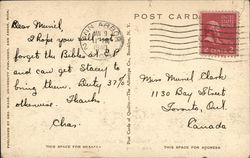 POST CARD
ANN ARBOR
Dear Muriel
I hope you will not
forget the Bibles at E.P
and can get Stacey to
bring them. Duty 37½%
otherwise. Thanks
Chas.
Miss Muriel Clark
1130 Bay Street
Toronto, Ont.
Canada
THIS SPACE FOR MESSAGE
THIS SPACE FOR ADDRESS